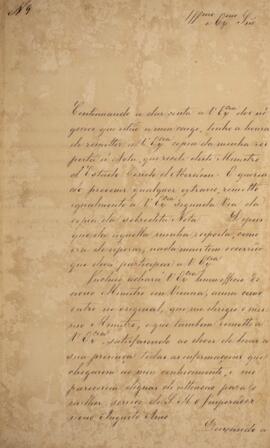 Nº 9
Illmo e Exmo Snr
Continuando a dar conta a V. Exa dos ne
gocios que estão a meu cargo, tenho a honra
de remetter a V. Exa copia da minha res
posta á Nota, que recebi deste Ministro
d'Estado Conde d'Aberdeen. E querendo
prevenir qualquer extravio, remetto
igualmente a V. Exa segunda Via da
copia da sobredita Nota. Depois
que dei aquella minha resposta, como
era de esperar, nada mais tem occorrido
que deva participar a V. Exa
Incluso achará V. Exa hum officio do
nosso Ministro em Vienna, assim como
outro no original, que me dirigio o mes
mo Ministro, o que tambem remetto a
V. Exa, satisfazendo ao dever de levar á
sua presença todas as informações que
chegarem ao meu conhecimento, e me
parecerem dignas de attenção para o
melhor serviço de S. M. o Imperador
nosso Augusto Amo
Desejando a